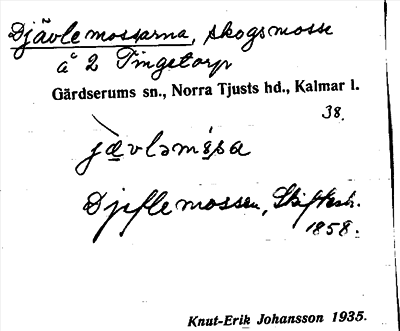 Djävlemossarna, skogsmosse
å 2 Tingetorp
Gärdserums sn., Norra Tjusts hd., Kalmar l.
38.
jævləmåsa
Djeflemossen, Skiftesh.
1858.
Knut-Erik Johansson 1935.